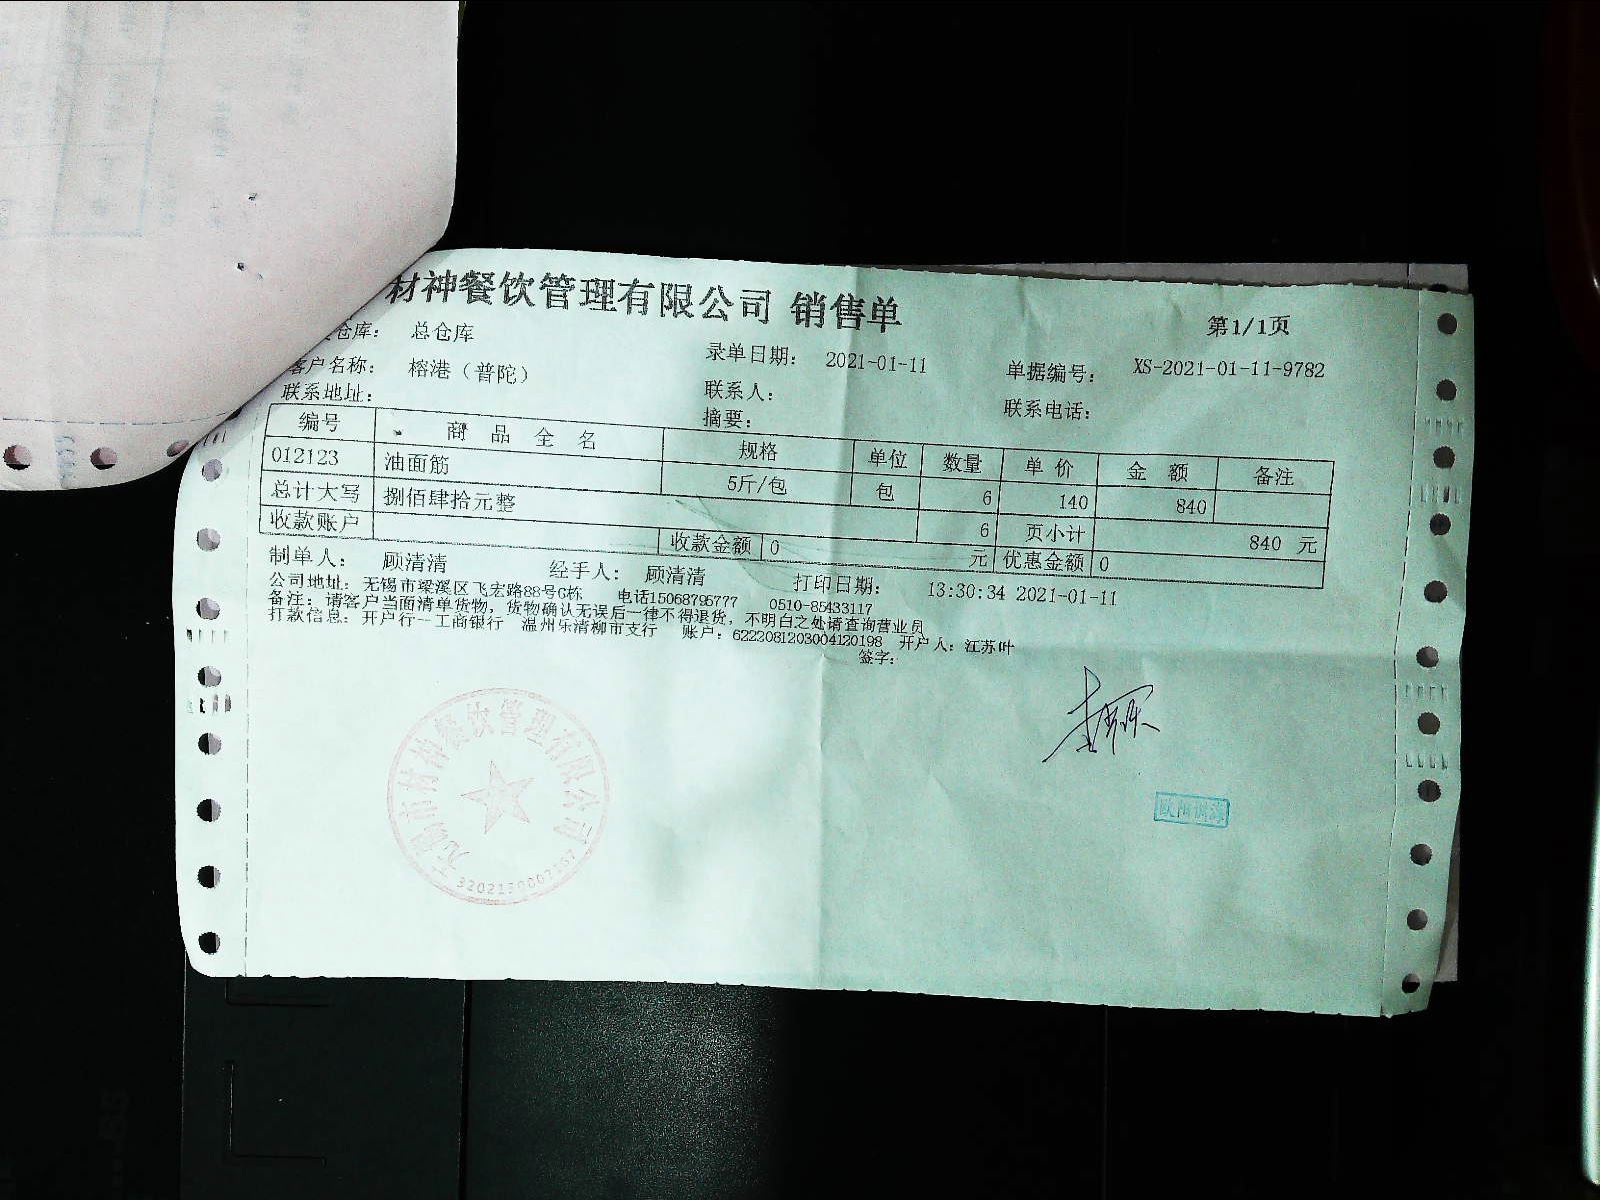 材神餐饮管理有限公司 销售单
第1/1页
仓库： 总仓库
录单日期： 2021-01-11
单据编号： XS-2021-01-11-9782
客户名称： 榕港（普陀）
联系人：
联系电话：
联系地址：
摘要：
编号 商品全名 规格 单位 数量 单价 金额 备注
012123 油面筋 5斤/包 包 6 140 840
总计大写 捌佰肆拾元整 6 页小计 840 元
收款账户 收款金额 0 元 优惠金额 0
制单人： 顾清清 经手人： 顾清清 打印日期： 13:30:34 2021-01-11
公司地址：无锡市梁溪区飞宏路88号G栋 电话15068795777 0510-85433117
备注：请客户当面清单货物，货物确认无误后一律不得退货，不明白之处请查询营业员
打款信息：开户行－工商银行 温州乐清柳市支行 账户：6222081203004120198 开户人：江苏叶
签字：
无锡市材神餐饮管理有限公司